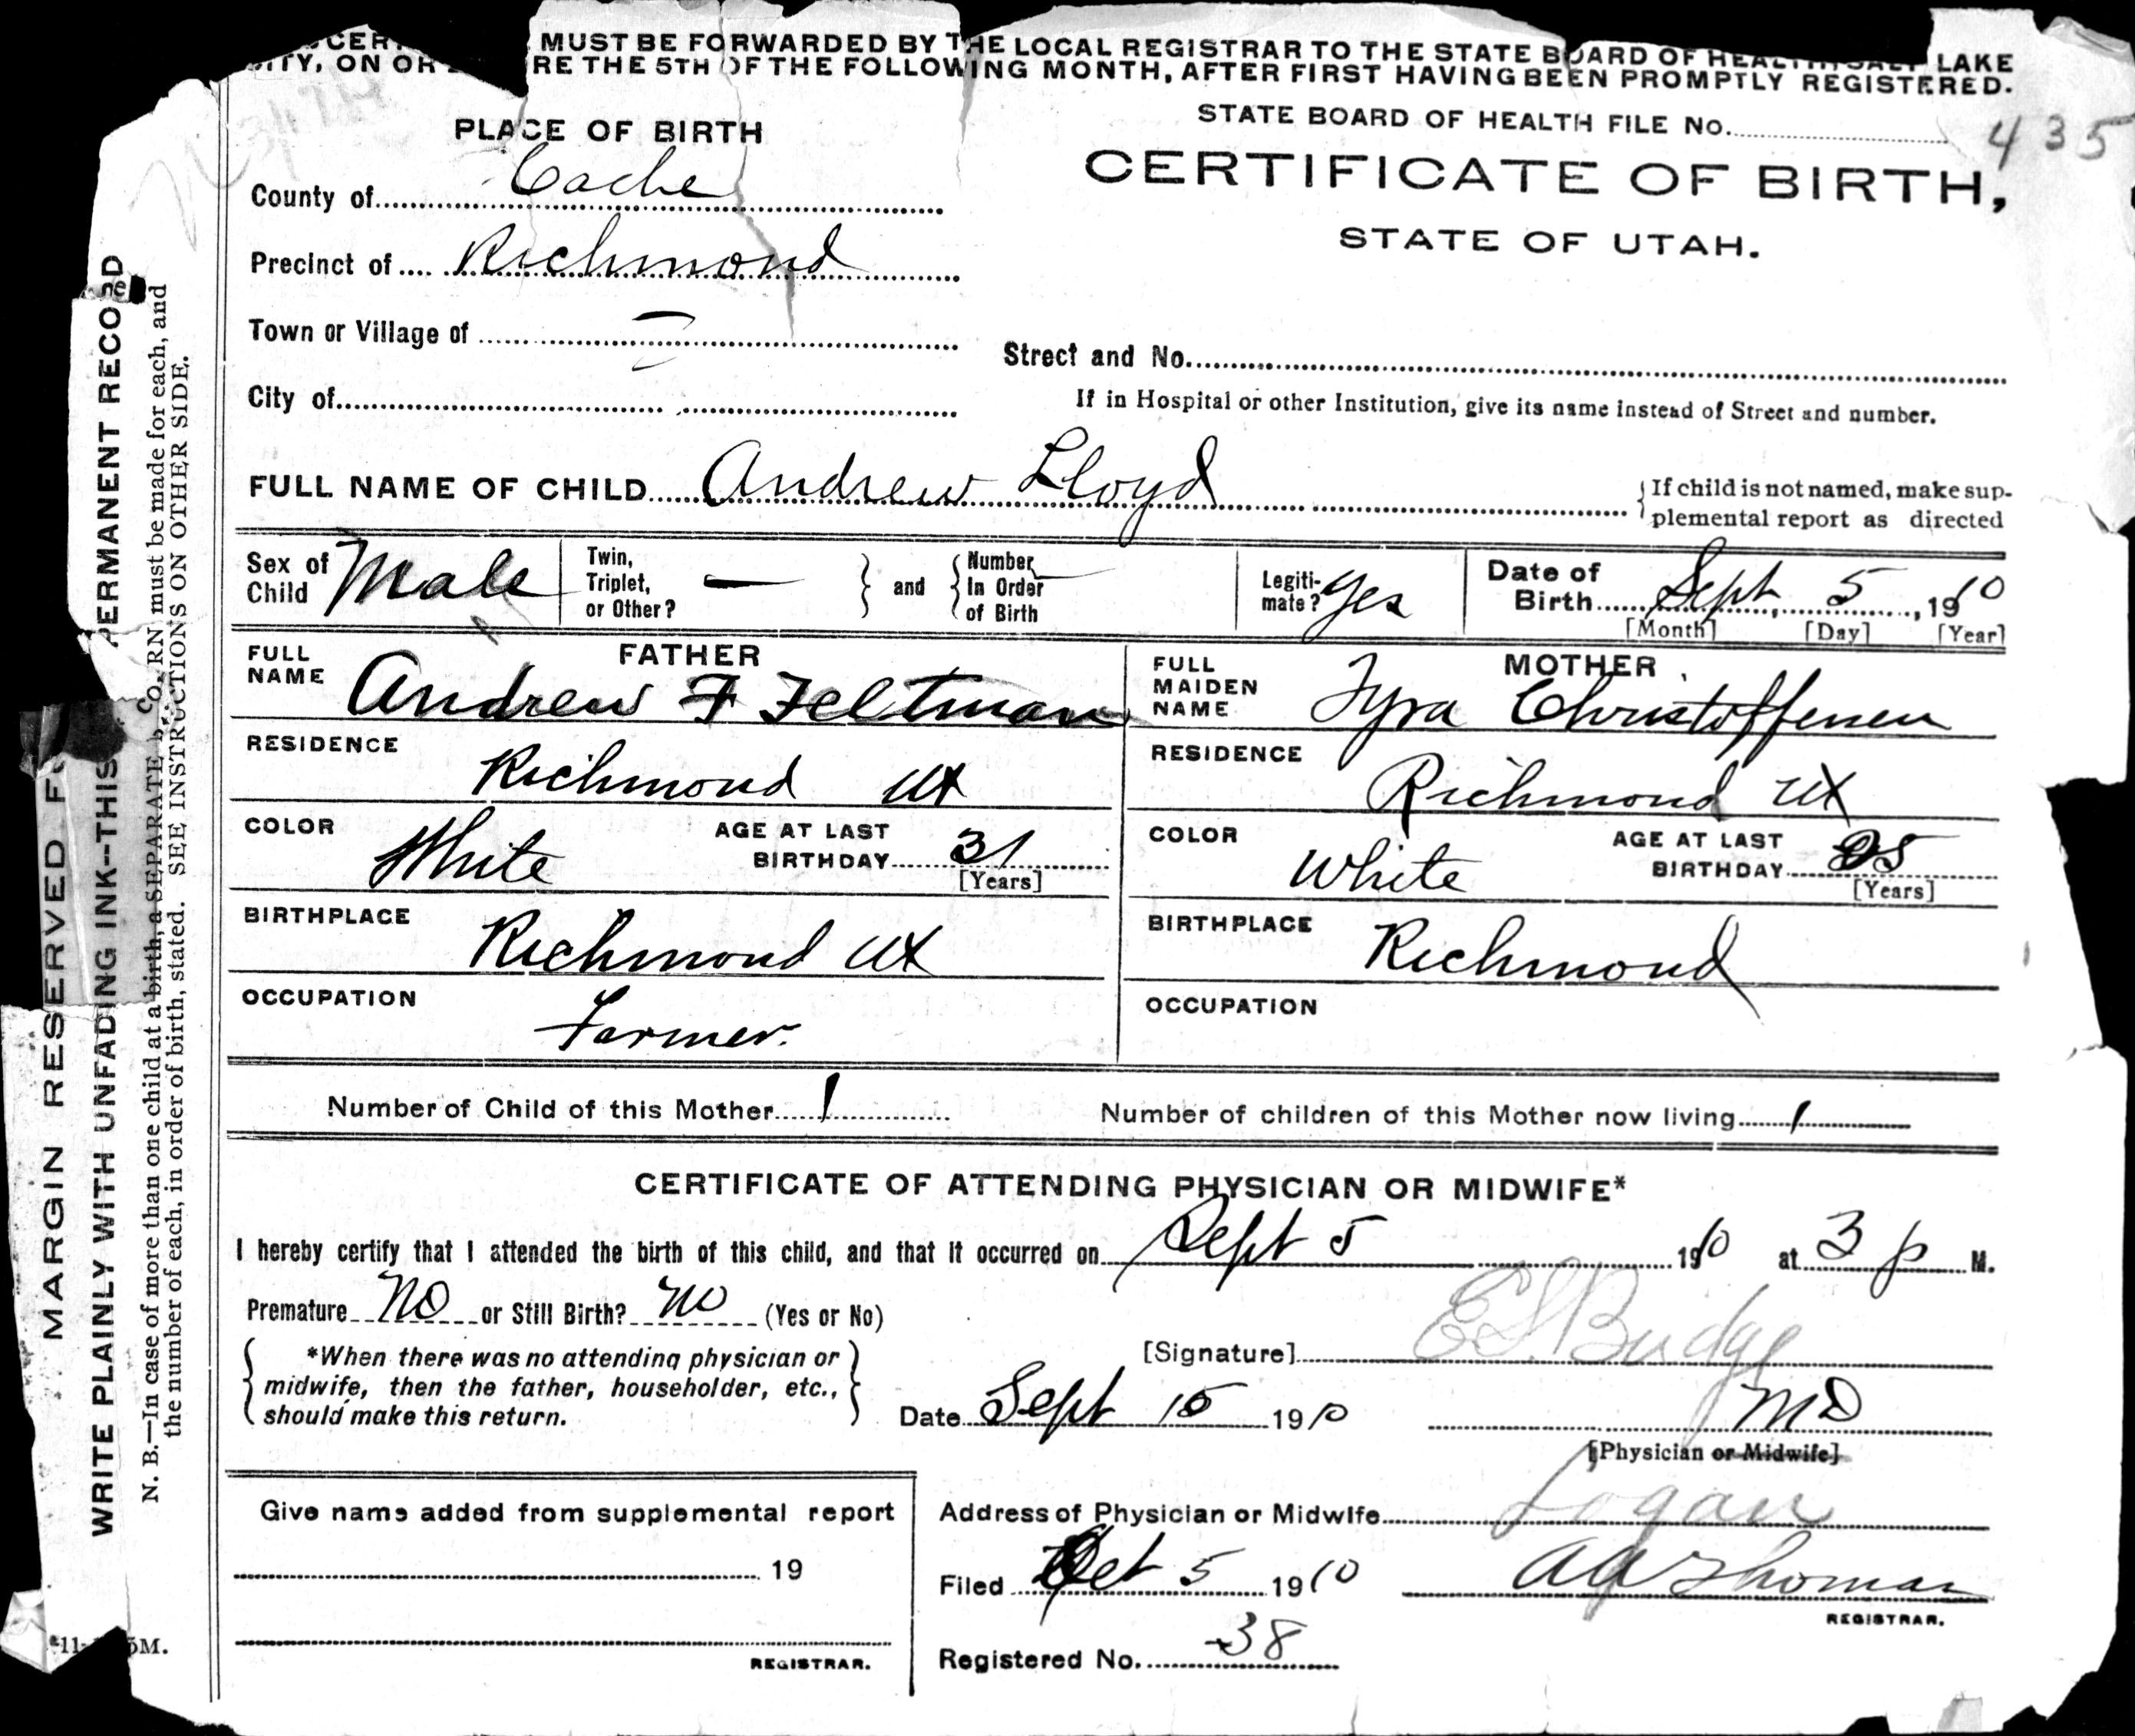 CER MUST BE FORWARDED BY THE LOCAL REGISTRAR TO THE STATE BOARD OF HEALTH LAKE
CITY, ON OR RE THE 5TH OF THE FOLLOWING MONTH, AFTER FIRST HAVING BEEN PROMPTLY REGISTERED.
STATE BOARD OF HEALTH FILE No. 435
PLACE OF BIRTH
CERTIFICATE OF BIRTH,
STATE OF UTAH.
County of Cache
Precinct of Richmond
Town or Village of —
Street and No.
City of
If in Hospital or other Institution, give its name instead of Street and number.
FULL NAME OF CHILD Andrew Lloyd
{If child is not named, make sup-
plemental report as directed
Sex of Child Male
Twin, Triplet, or Other? — } and { Number In Order of Birth —
Legiti-mate? Yes
Date of Birth Sept 5, 1910
[Month] [Day] [Year]
FATHER
FULL NAME Andrew F Feltman
MOTHER
FULL MAIDEN NAME Tyra Christoffersen
RESIDENCE Richmond Ut
RESIDENCE Richmond Ut
COLOR White AGE AT LAST BIRTHDAY 31 [Years]
COLOR White AGE AT LAST BIRTHDAY [Years]
BIRTHPLACE Richmond Ut
BIRTHPLACE Richmond
OCCUPATION Farmer.
OCCUPATION
Number of Child of this Mother 1
Number of children of this Mother now living 1
CERTIFICATE OF ATTENDING PHYSICIAN OR MIDWIFE*
I hereby certify that I attended the birth of this child, and that it occurred on Sept 5 1910 at 3 p M.
Premature No or Still Birth? No (Yes or No)
*When there was no attending physician or
midwife, then the father, householder, etc.,
should make this return.
[Signature] E S Budge
Date Sept 15 1910 MD
[Physician or Midwife]
Give name added from supplemental report
19
REGISTRAR.
Address of Physician or Midwife Logan
Filed Oct 5 1910 A A Thomas
REGISTRAR.
Registered No. 38
MARGIN RESERVED F
WRITE PLAINLY WITH UNFADING INK--THIS PERMANENT RECORD
N. B.—In case of more than one child at a birth, a SEPARATE RN must be made for each, and
the number of each, in order of birth, stated. SEE INSTRUCTIONS ON OTHER SIDE.